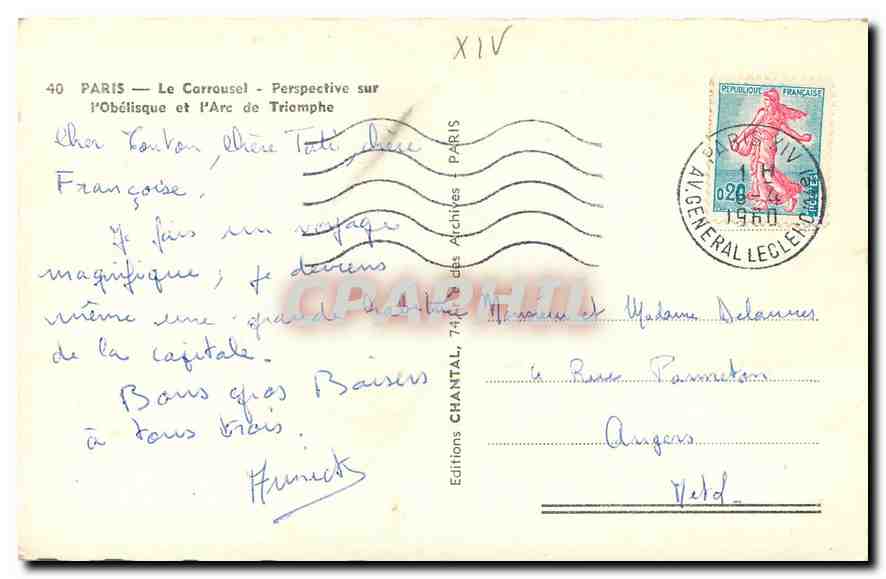 XIV
40 PARIS — Le Carrousel - Perspective sur
l'Obélisque et l'Arc de Triomphe
Cher Tonton, Chère Tati, chère
Françoise.
Je fais un voyage
magnifique ; je deviens
même une grande habituée
de la capitale.
Bons gros Baisers
à tous trois.
Editions CHANTAL, 74, des Archives - PARIS
REPUBLIQUE FRANÇAISE
0,20
PARIS XIV
1 H
6-4
1960
AV. GENERAL LECLERC
Monsieur et Madame Delaunes
Rue
Angers
CPAPHIL